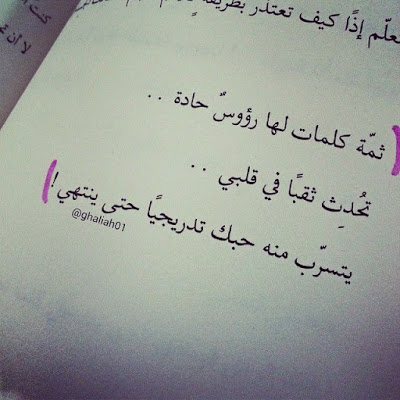 تعلّم إذًا كيف تعتذر بطريقة
ثمّة كلمات لها رؤوسٌ حادة . .
تُحدِث ثقبًا في قلبي . .
يتسرّب منه حبك تدريجيًا حتى ينتهي!
@ghaliah01